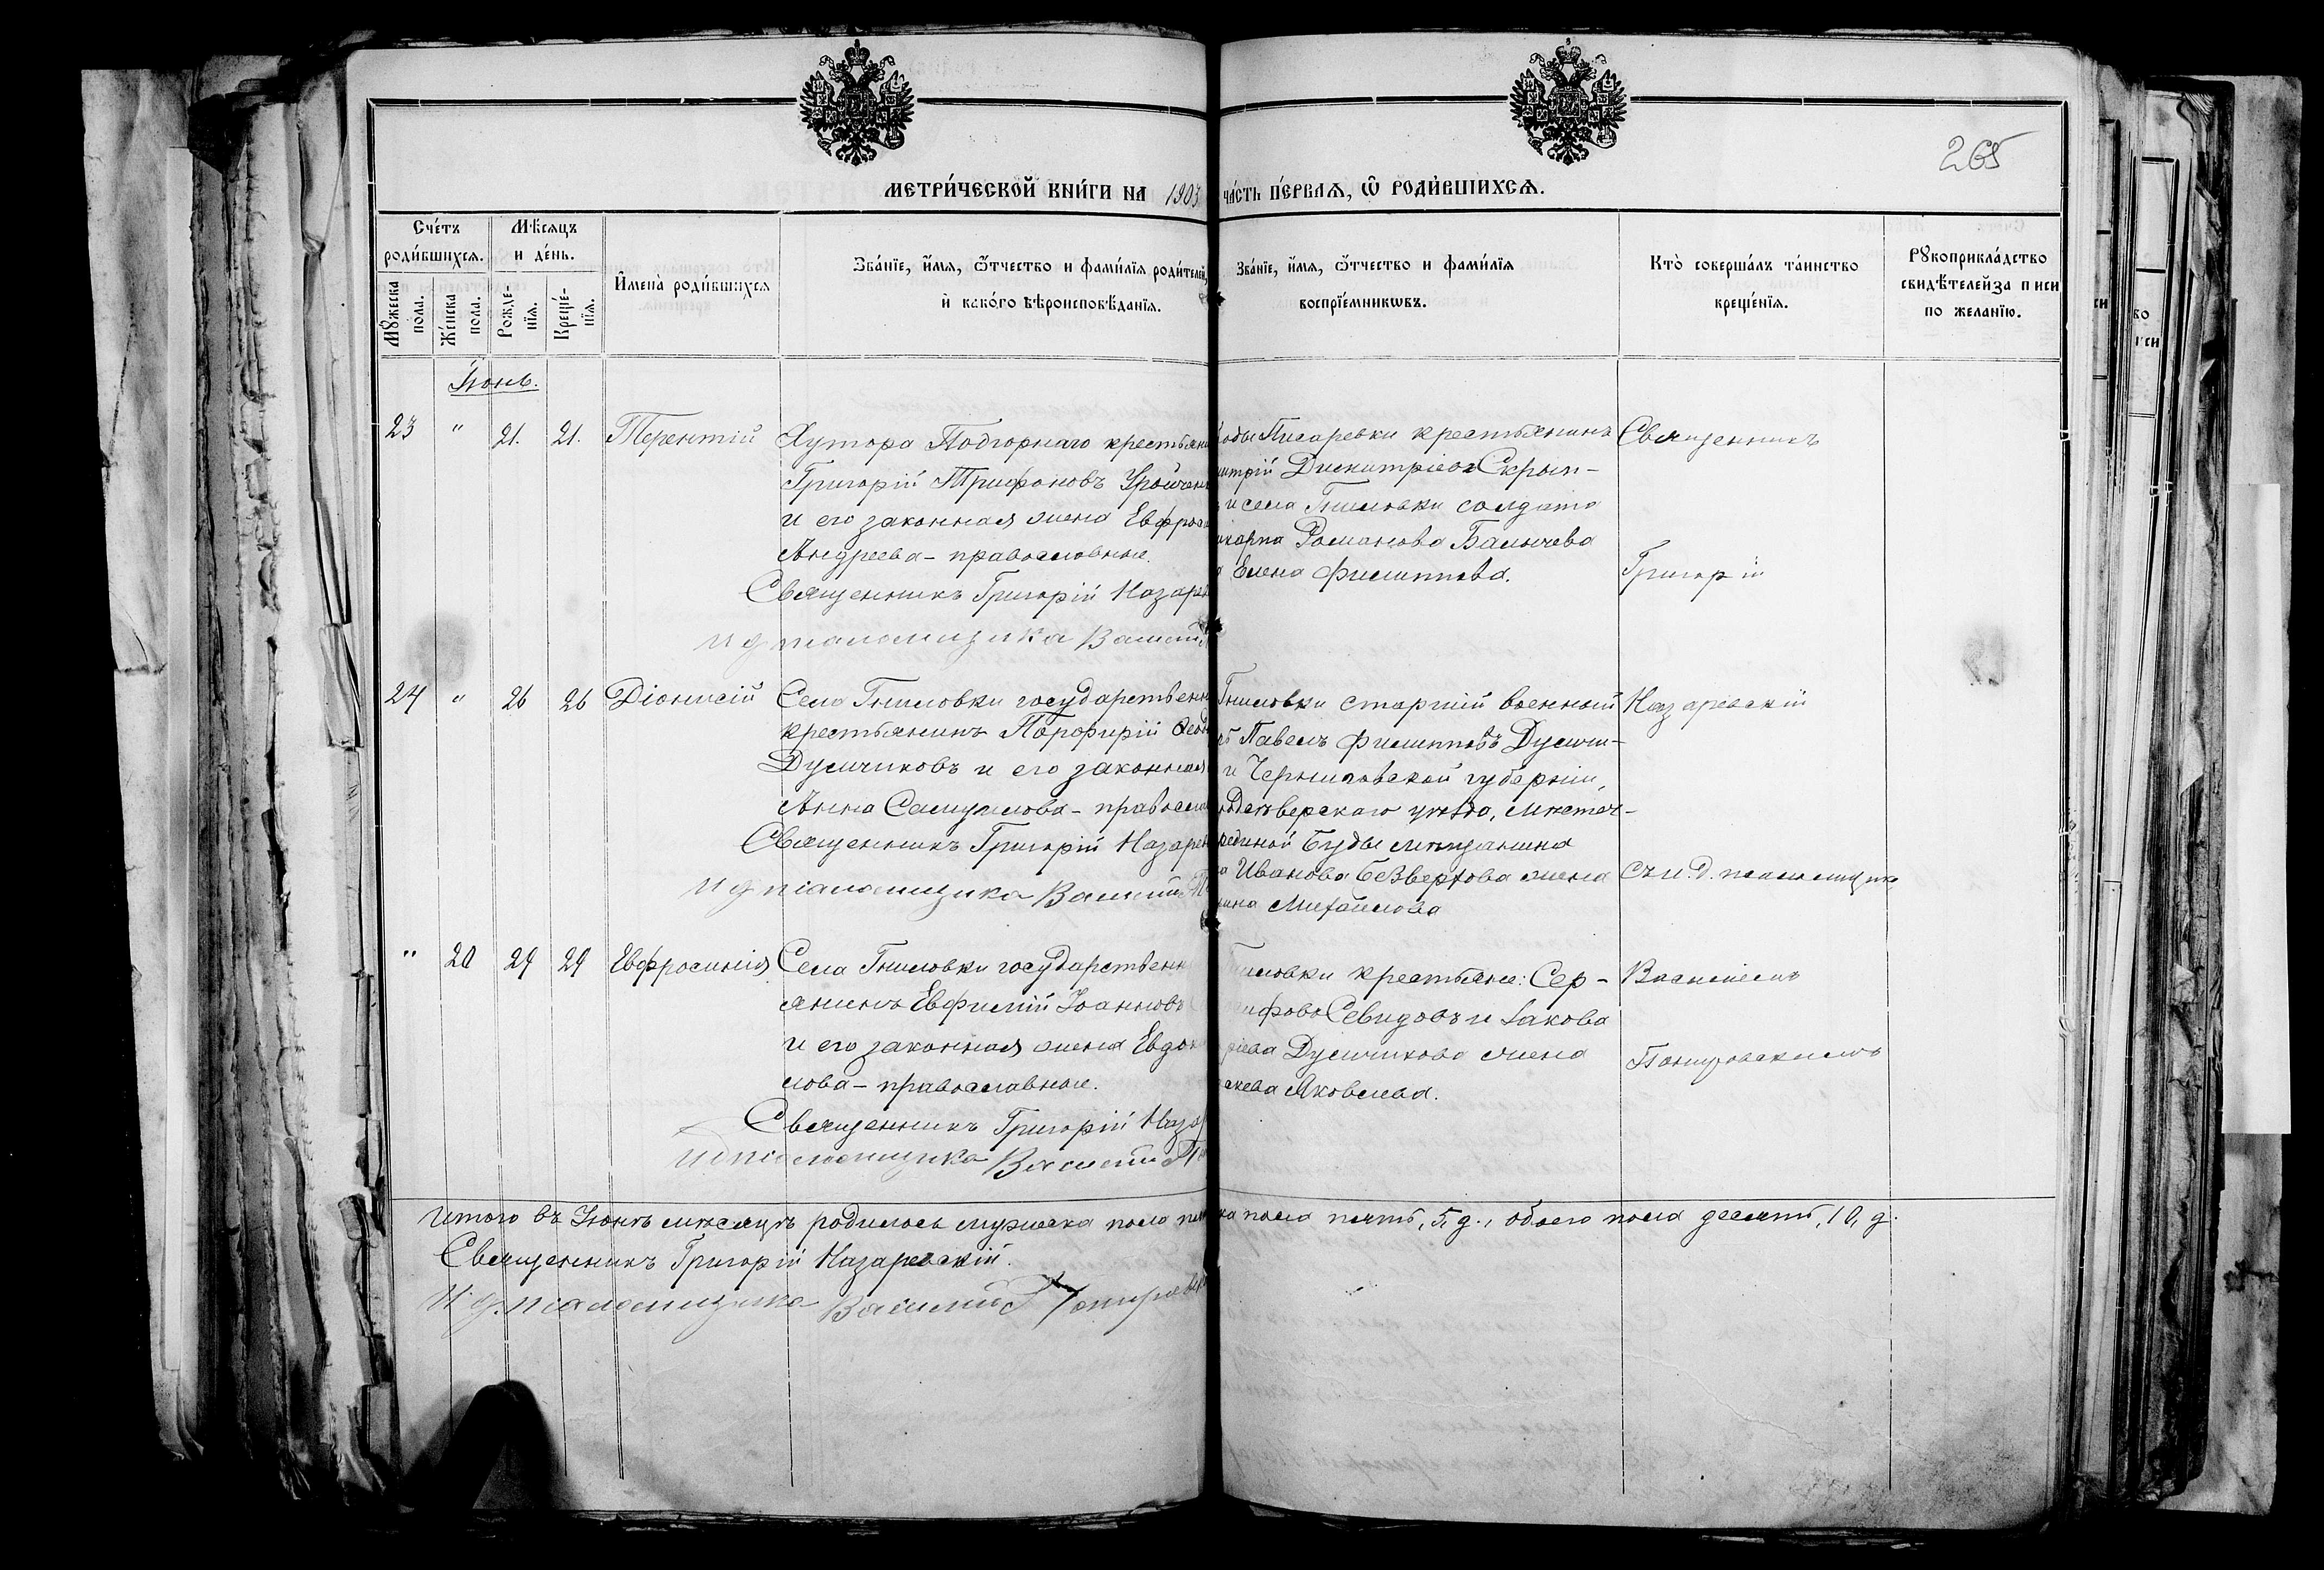 265
МЕТРИ́ЧЕСКОЙ КНИ́ГИ НА 1903
ЧА́СТЬ ПЕ́РВАѦ, Ѿ РОДИ́ВШИХСѦ.
Сче́тъ роди́вшихсѧ.
Мꙋ́жеска пола.
Же́нска пола.
Мѣ́сѧцъ и де́нь.
Рожде́-нїѧ.
Креще́-нїѧ.
И҆мена роди́вшихсѧ
Зва́нїе, и҆́мѧ, ѻ҆́тчество и фами́лїѧ роди́телей,
и҆ како́гѡ вѣроисповѣ́данїѧ.
Зва́нїе, и҆́мѧ, ѻ҆́тчество и фами́лїѧ
воспрїе́мникѡвъ.
Кто̀ соверша́лъ та́инство
креще́нїѧ.
Рꙋкоприкла́дство
свидѣ́телей за писи
по жела́нїю.
Іюнь.
23 " 21. 21. Терентій
Хутора Подгорнаго крестьяни
Григорій Трифоновъ
и его законная жена Евфрос
Андреева - православные.
Священникъ Григорій Назаре
И д псаломщика Василій
оды Писаревки крестьянинъ
итрій Димитріевъ Скрып-
и села Гниловки солдата
икарпа Романова Балычева
Елена Филиппова.
Священникъ
Григорій
24 " 26 26 Діонисій
Села Гниловки государственн
крестьянинъ Порфирій Феод
Думчиковъ и его законная
Анна Самуилова - правосла
Священникъ Григорій Назарев
И д псаломщика Василій П
Гниловки старшій военный
Павелъ Филипповъ Думчи-
и Черниговской губерніи,
верскаго уѣзда, мѣстеч-
рединой Буды мѣщанина
Иванова Безверхова жена
ина Михайлова
Назаревскій
съ и. д. псаломщика
" 20 29 29 Евфросинія
Села Гниловки государственн
янинъ Евфимій Іоанновъ
и его законная жена Евдок
лова - православные.
Священникъ Григорій Назар
И д псаломщика Василій П
иловки крестьяне: Сер-
ифовъ Севидовъ и Іакова
ріева Думчикова жена
акева Яковлева.
Василіемъ
Итого въ Іюнѣ мѣсяцѣ родилось мужеска пола пя
ка пола пять, 5, д., обоего пола десять, 10, д.
Священникъ Григорій Назаревскій.
И. д. псаломщика Василій